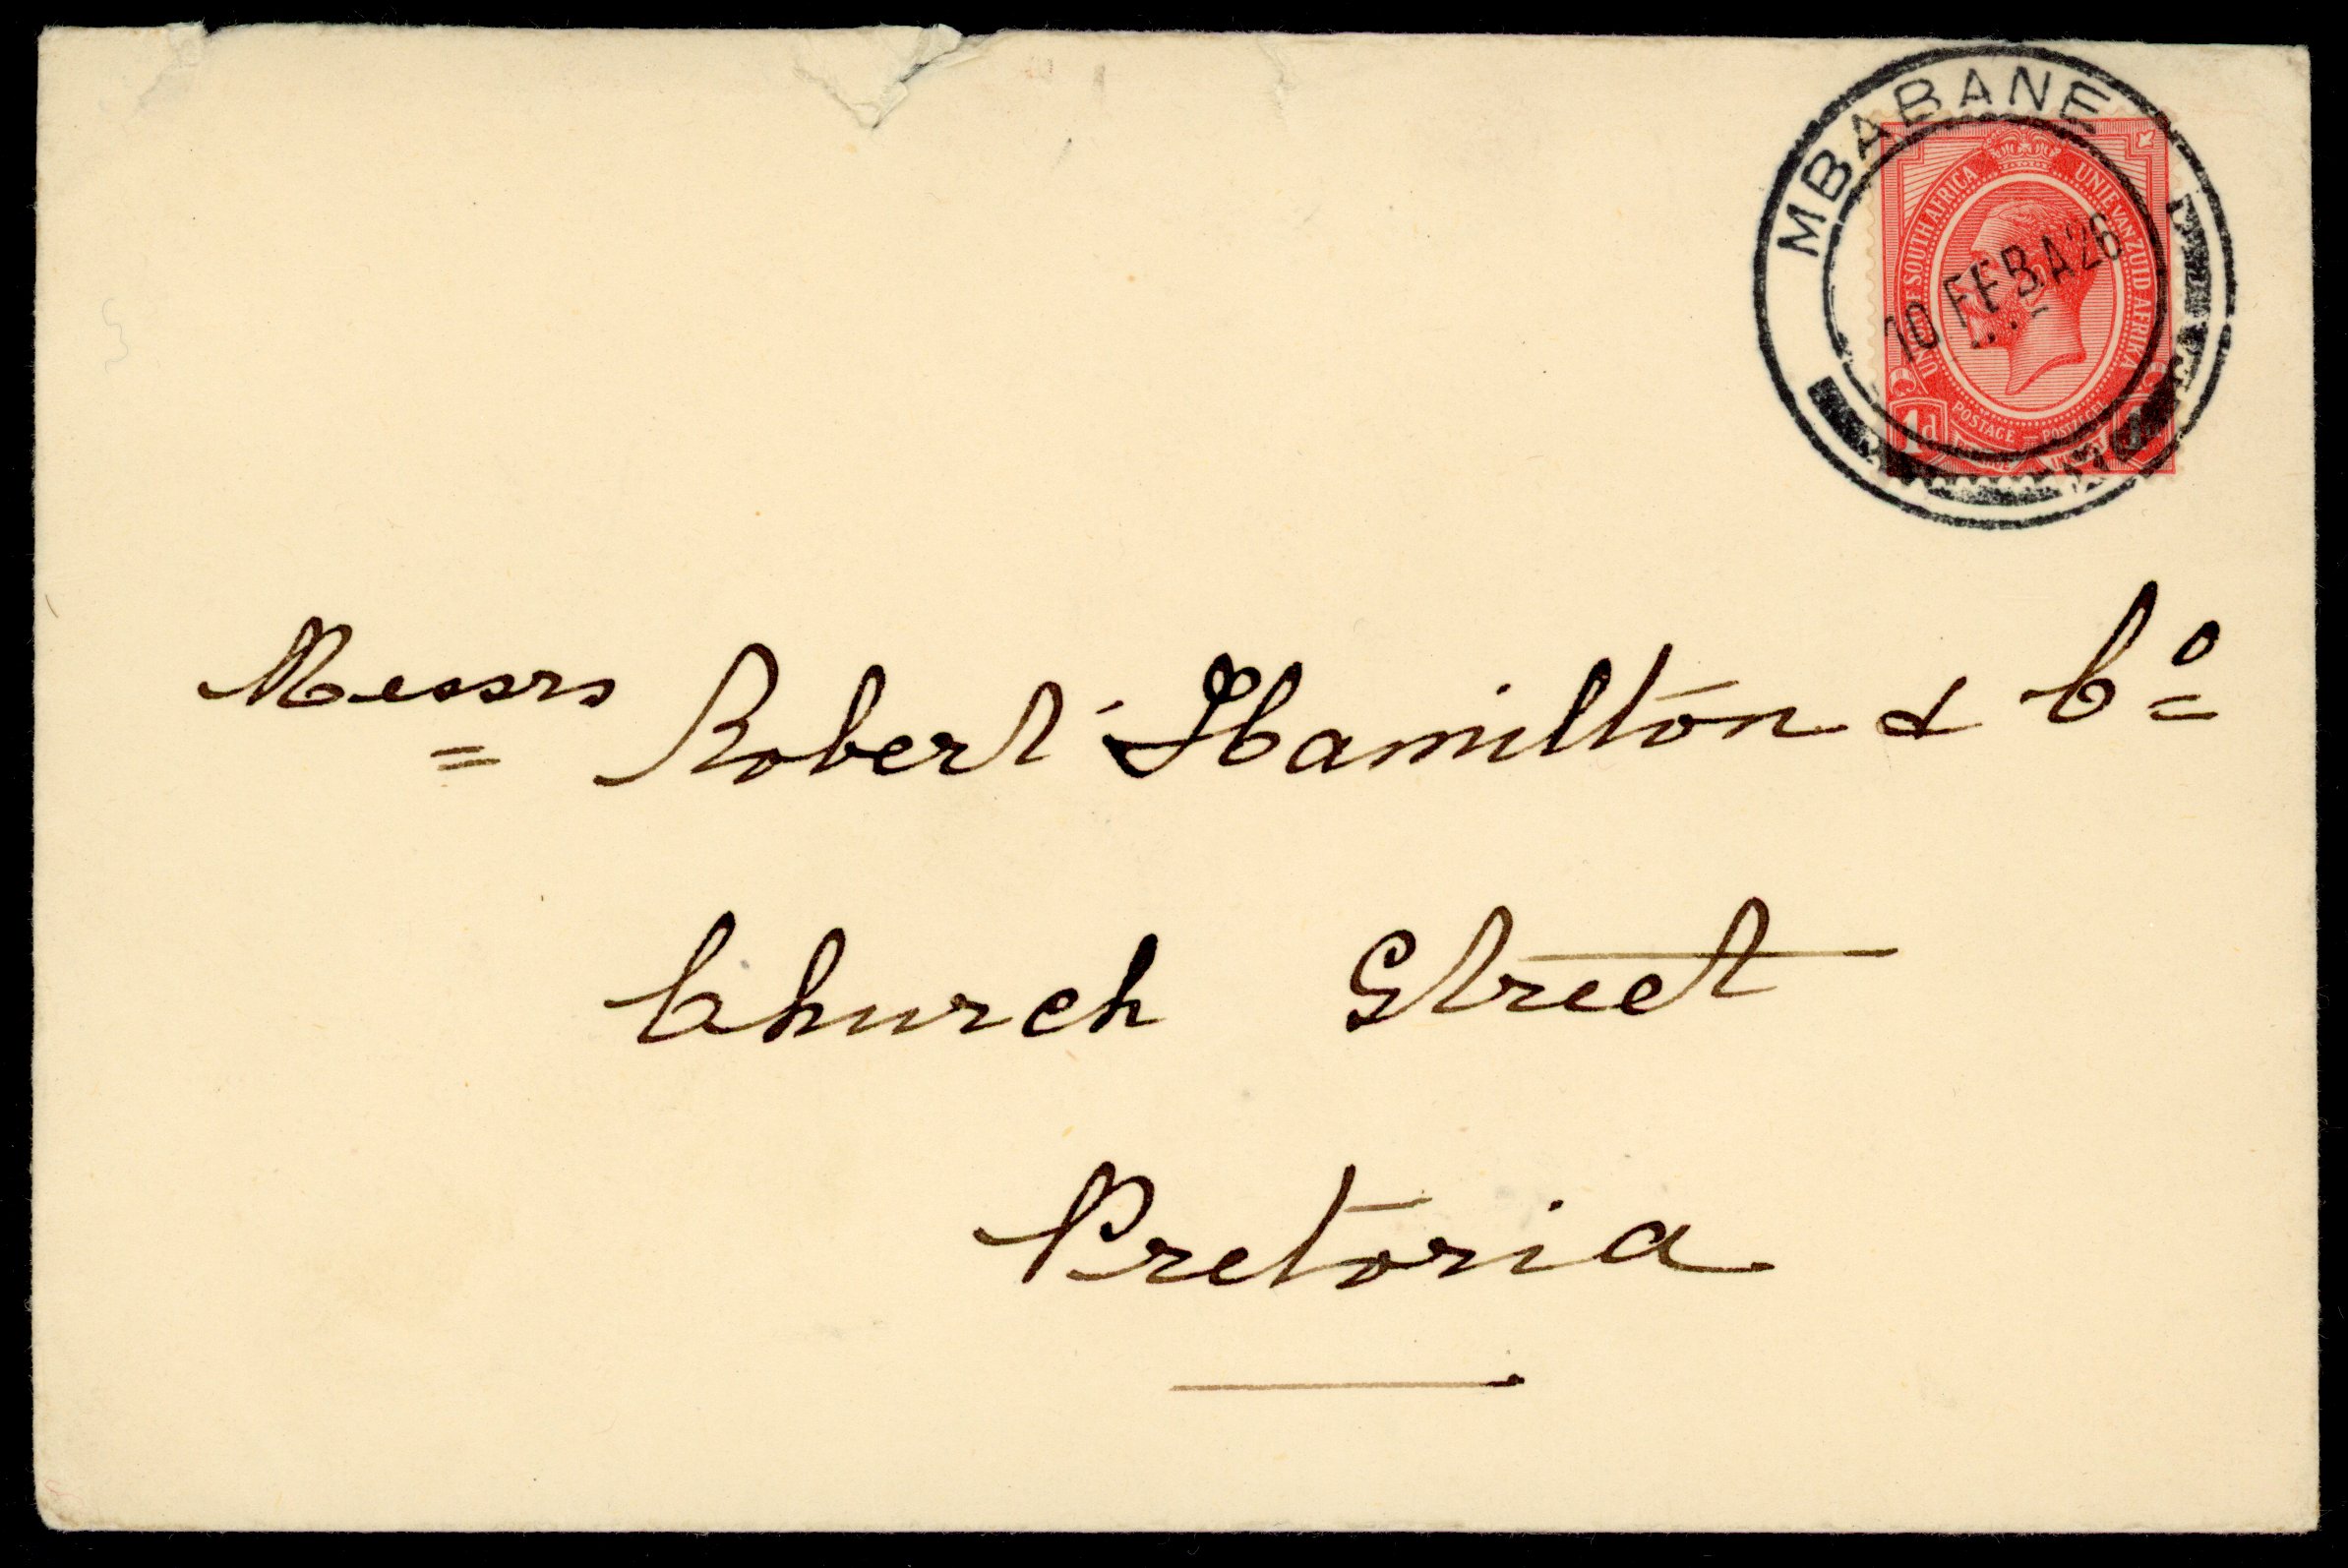 MBABANE
10 FEB A 26
SOUTH AFRICA
UNIE VAN ZUID AFRIKA
POSTAGE
1d
Messrs Robert Hamilton & Co
Church Street
Pretoria